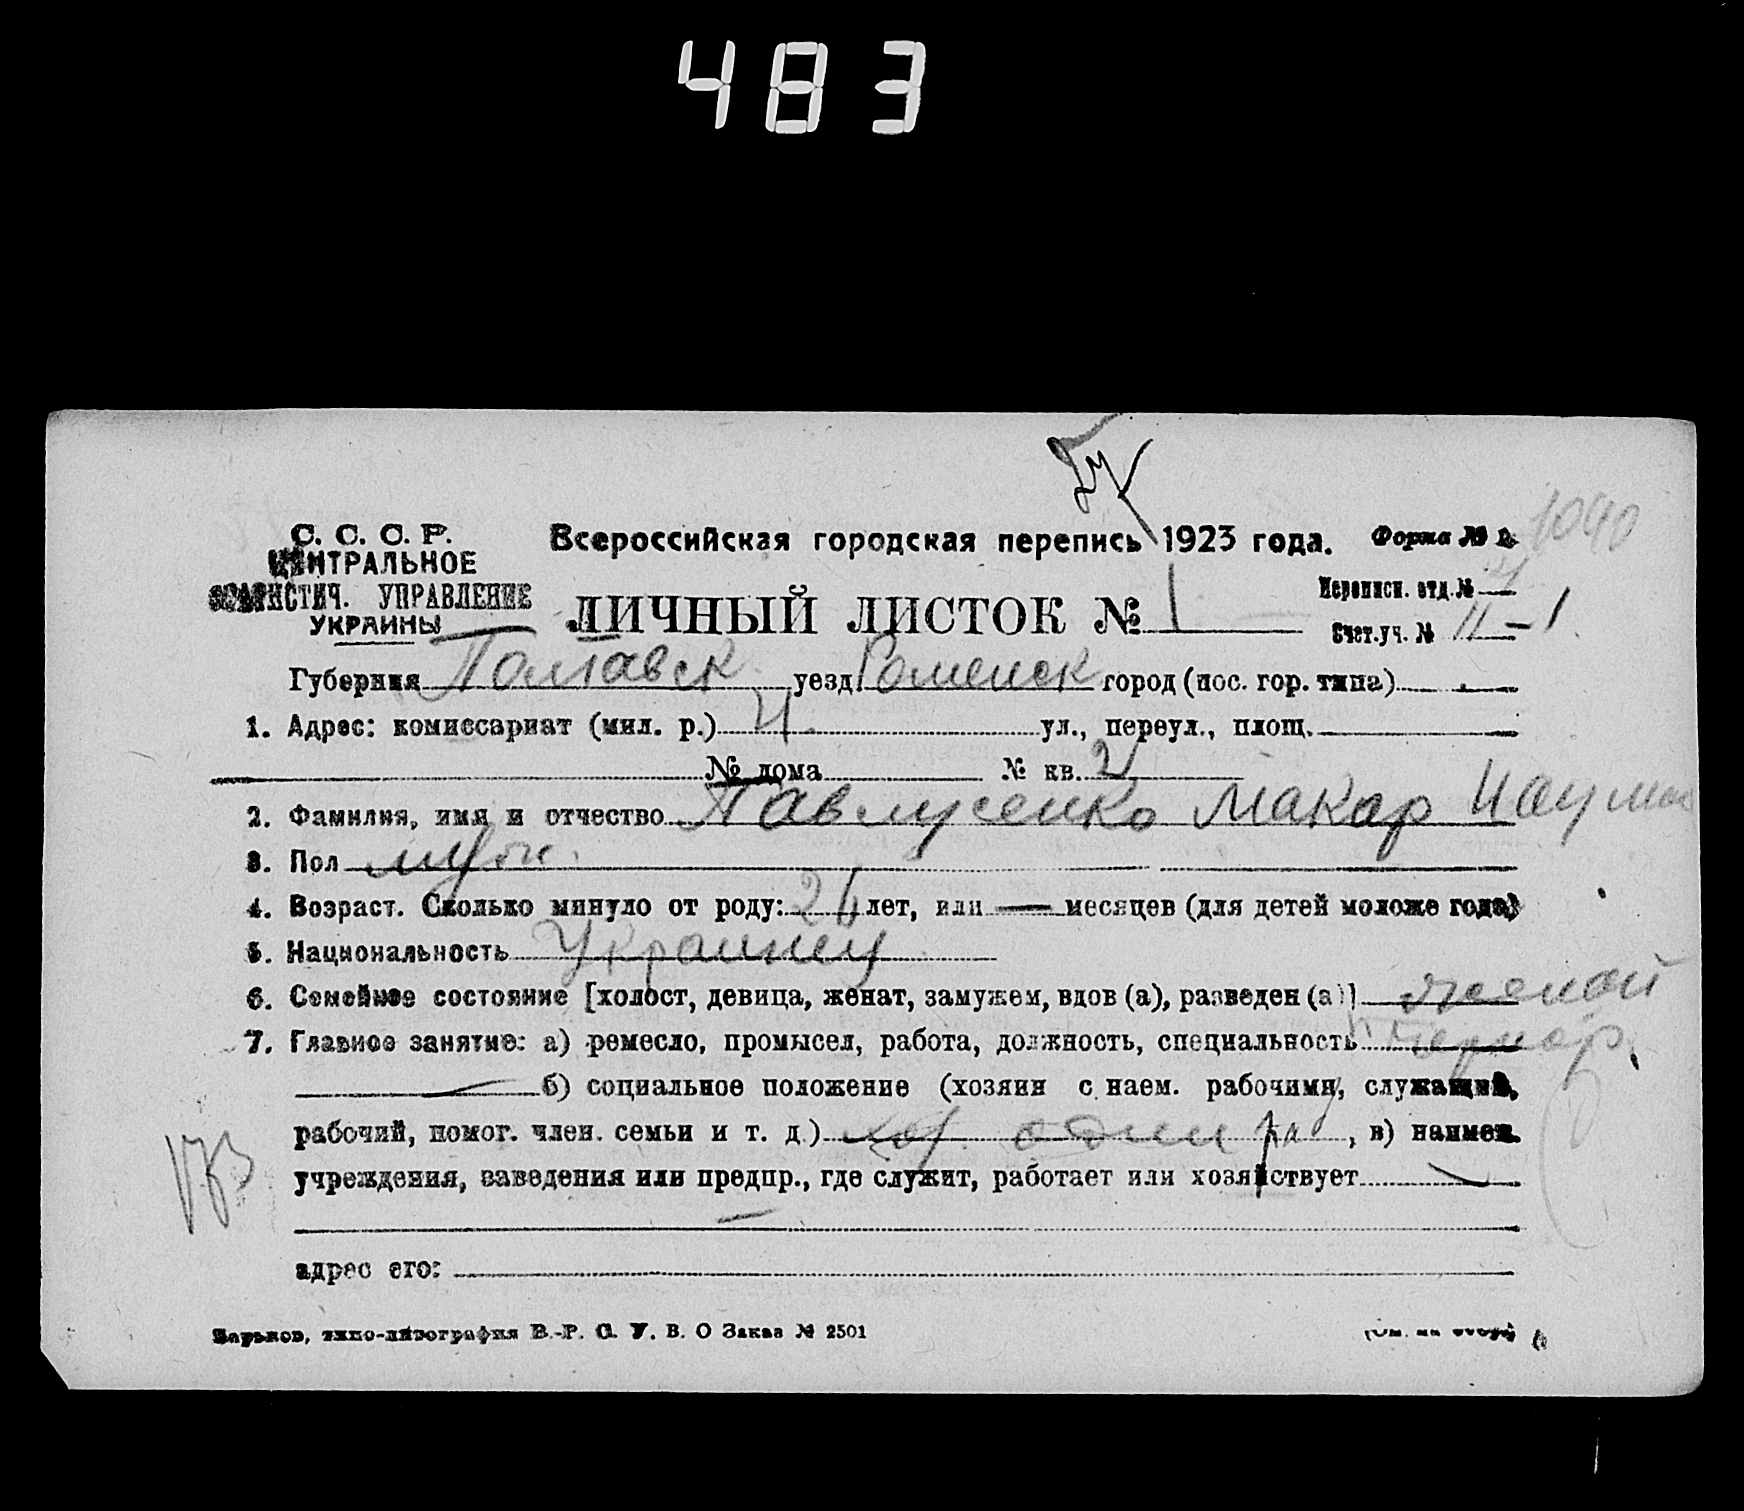 483
1090
С. С. С. Р.
ЦЕНТРАЛЬНОЕ
СТАТИСТИЧ. УПРАВЛЕНИЕ
УКРАИНЫ
Всероссийская городская перепись 1923 года.
Форма № 2
ЛИЧНЫЙ ЛИСТОК № 1
Переписн. отд. №
Счет. уч. № 11-1
Губерния Полтавск уезд Роменск город (пос. гор. типа) —
1. Адрес: комиссариат (мил. р.) ул., переул., площ.
№ дома № кв. 2
2. Фамилия, имя и отчество Павлусенко Макар Наумов
3. Пол муж.
4. Возраст. Сколько минуло от роду: 26 лет, или — месяцев (для детей моложе года)
5. Национальность Украинец
6. Семейное состояние [холост, девица, женат, замужем, вдов (а), разведен (а)]
7. Главное занятие: а) ремесло, промысел, работа, должность, специальность
— б) социальное положение (хозяин с наем. рабочими, служащий,
рабочий, помог. член. семьи и т. д.) хоз. один , в) наимен.
учреждения, заведения или предпр., где служит, работает или хозяйствует —
173
адрес его:
Харьков, типо-литография В.-Р. С. У. В. О Заказ № 2501